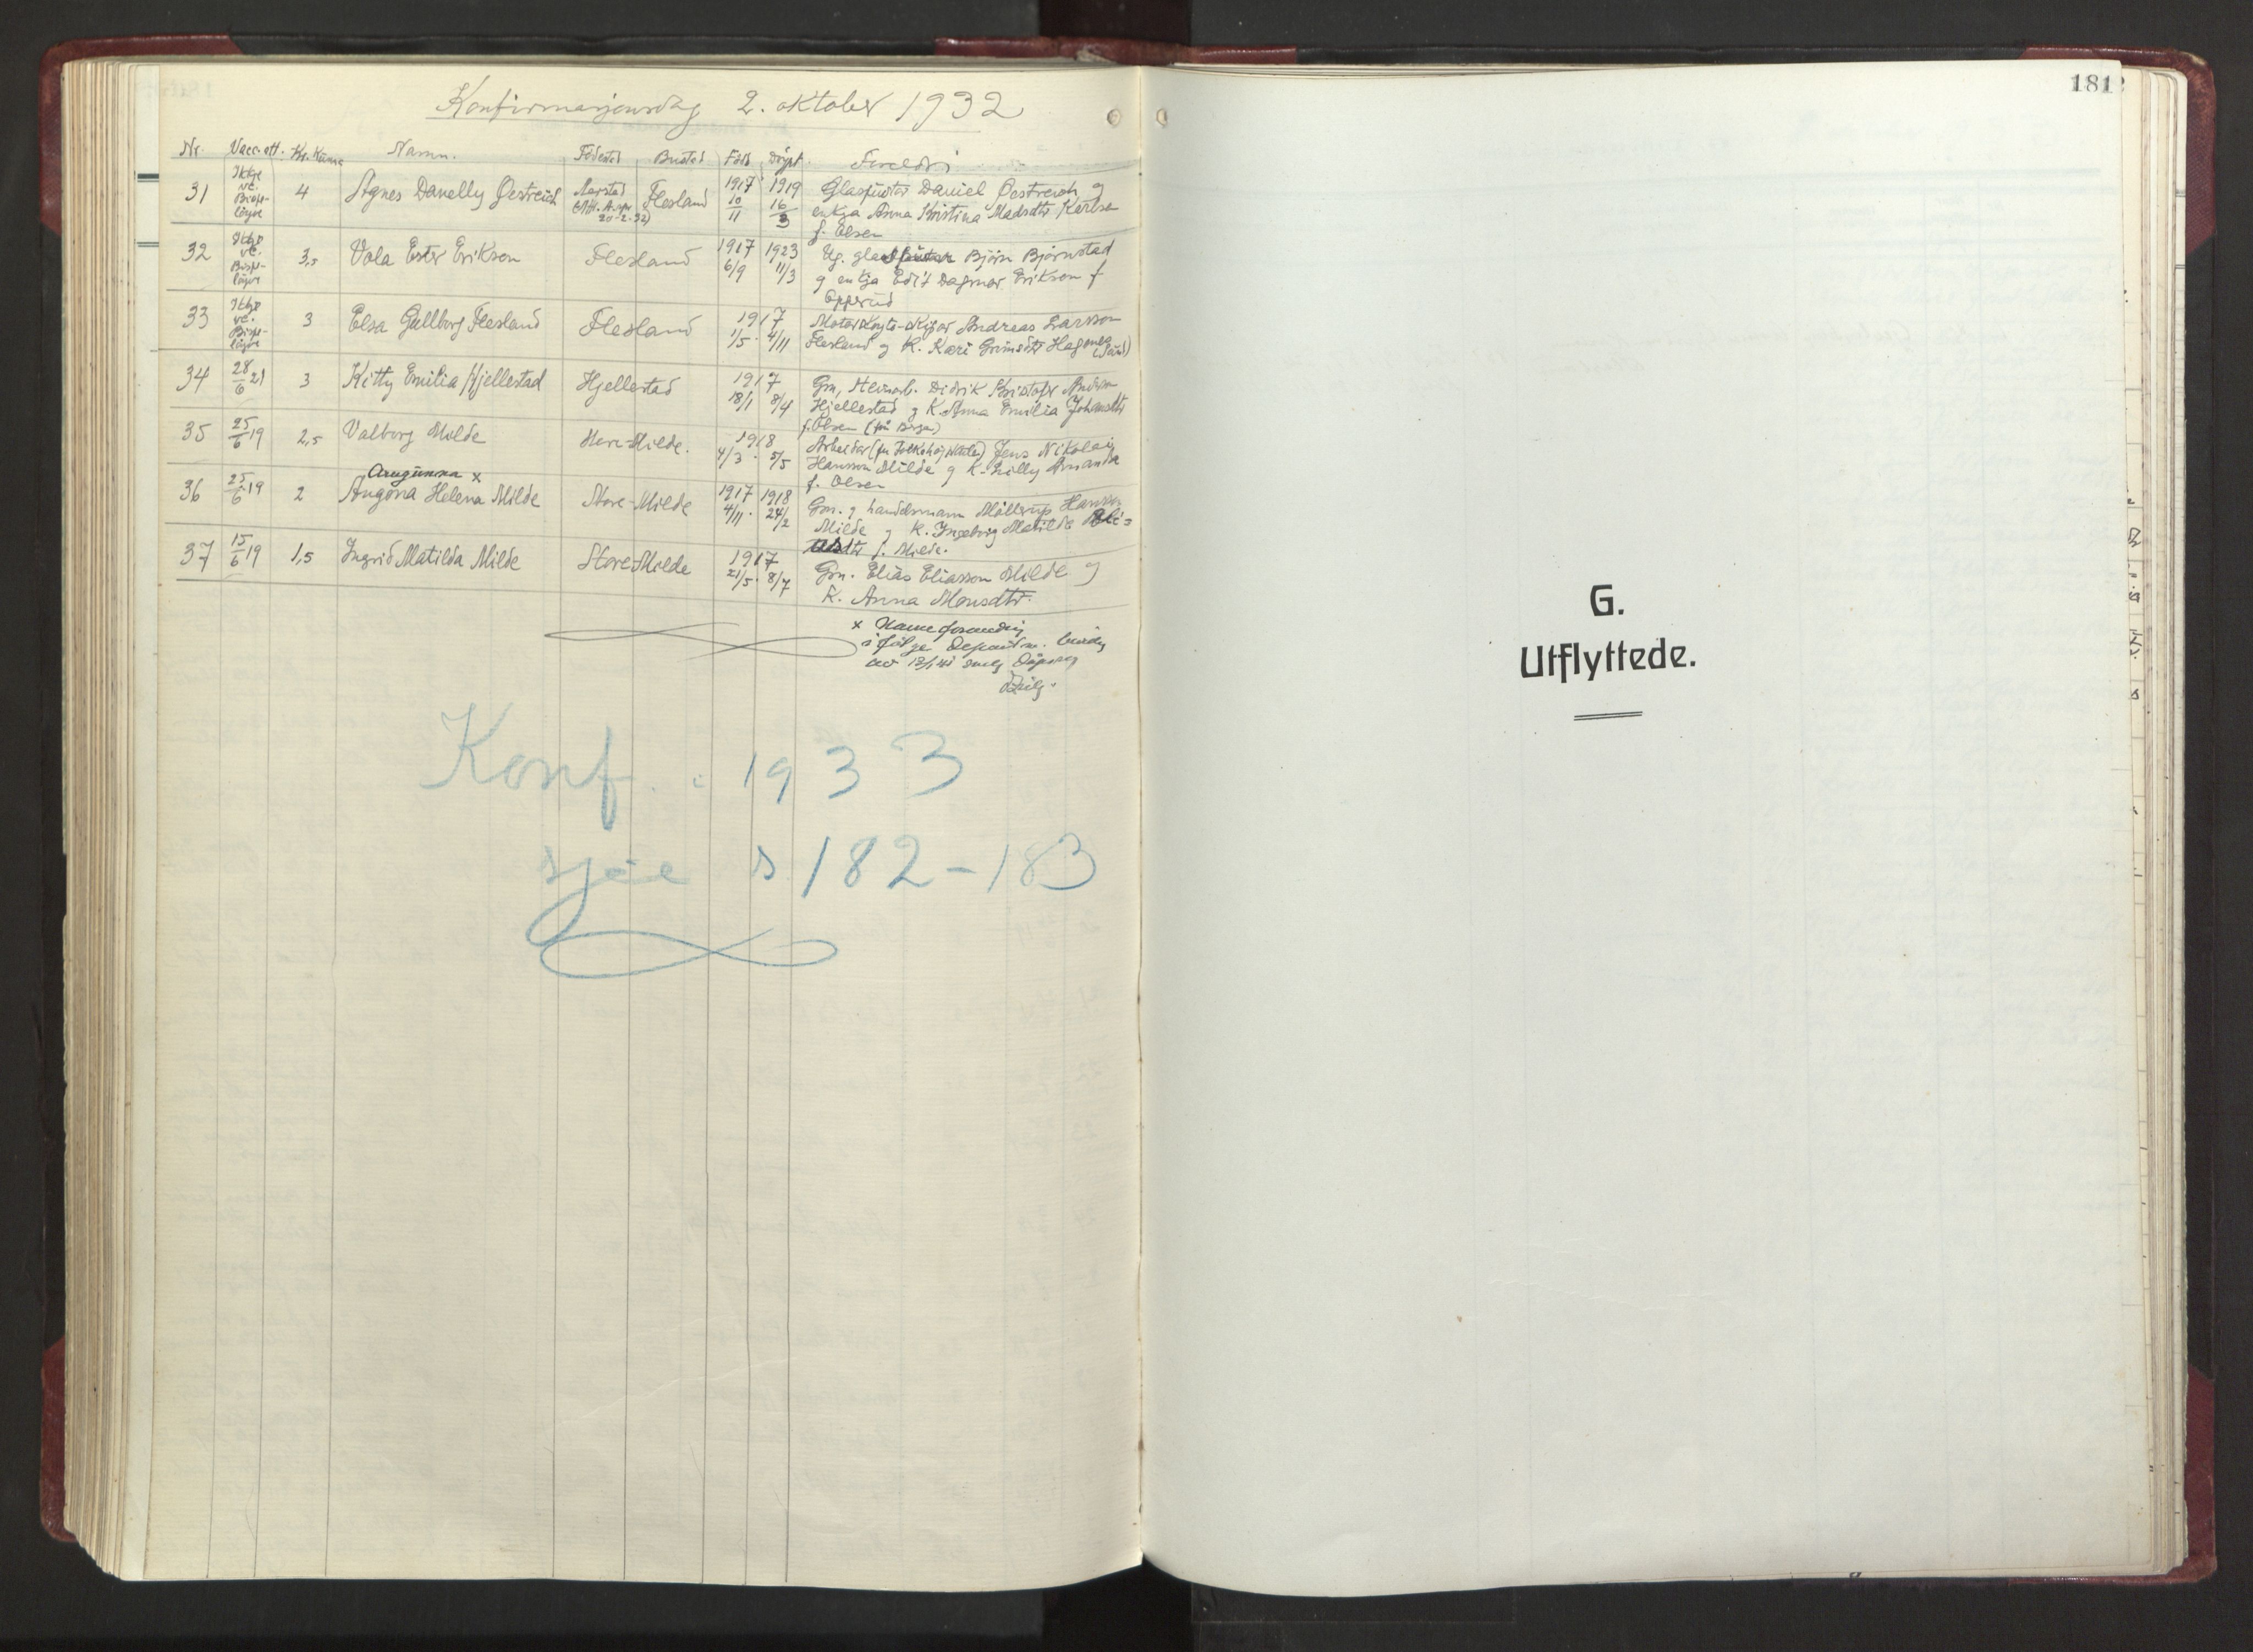 Konfirmasjonsdag 2. oktober 1932
Nr. Vacc. att. Kr. Kunna Namn. Födestad Bustad Född Döypt. Foreldri
31 Ikkje vc. Bispe-löyve 4 Agnes Danelly Oestreich Flesland 1917 10/11 1919 16/3
Daniel Oestreich og
enkja Anna Kristina Madsdtr Karlsen
f. Olsen
32 Ikkje vc. Bispe-löyve 3,5 Vola Ester Erikson Flesland 1917 6/9 1923 11/3
Ug. Björn Björnstad
og enkja Edit Dagmar Erikson f
Opperud
33 Ikkje vc. Bispe-löyve 3 Elsa Gullborg Flesland Flesland 1917 1/5. 4/11
Motorskøyte-skipar Andreas Larsson
Flesland og K. Kari Grimsdtr
34 28/6 21 3 Kitty Emilia Hjellestad Hjellestad 1917 18/1 8/4
Gm, Didrik Kristofer
Hjellestad og K. Anna Emilia Johansdtr
f. Olsen (frå Bergen)
35 25/6 19 2,5 Valborg Milde Store-Milde. 1918 4/3. 5/5
Arbeidar Jens Nikolai
Hansson Milde og K. Lilly Amanda
f. Olsen
Augunna x
36 25/6 19 2 Augona Helena Milde Store-Milde 1917 4/11. 1918 24/2
Gm. og handelsmann Möllerup Hansson
Milde og K. Ingeborg Matilde Eli-
asdtr f. Milde.
37 15/6 19 1,5 Ingrid Matilda Milde Store-Milde 1917 21/5. 8/7
Gm. Elias Eliasson Milde og
K. Anna Monsdtr.
x Namneforandring
i fölge Departm.
av
Konf. i 1933
sjåe s 182-183
181
G.
Utflyttede.